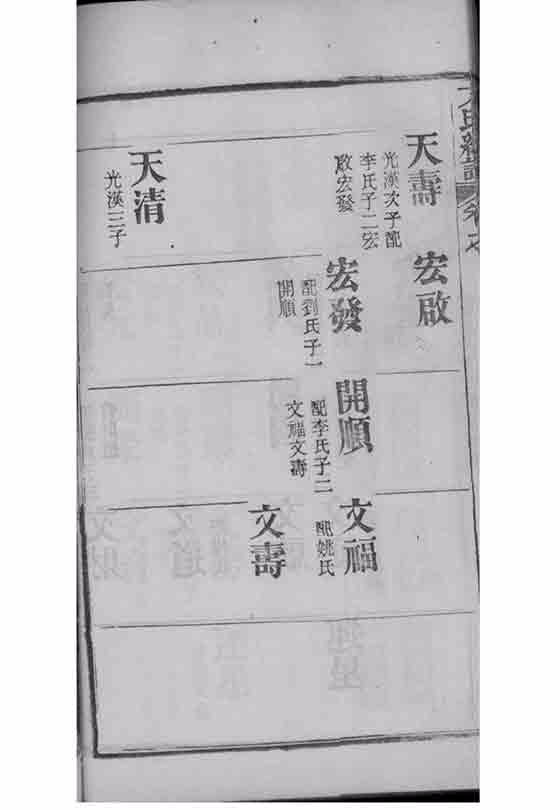 氏
卷
天壽
光漢次子配
李氏子二宏
啟宏發
宏啟
宏發
配劉氏子一
開順
開順
配李氏子二
文福文壽
文福
配姚氏
文壽
天清
光漢三子